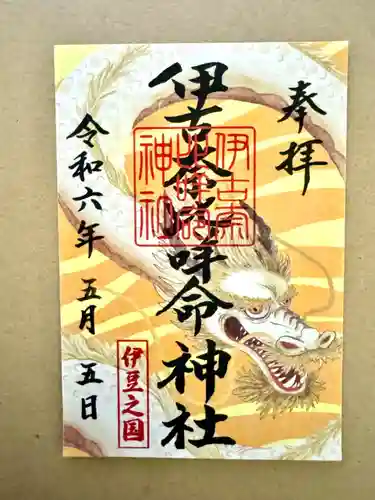 奉拝
伊古奈比咩命神社
伊古奈
比咩命
神社
伊豆之国
令和六年 五月 五日